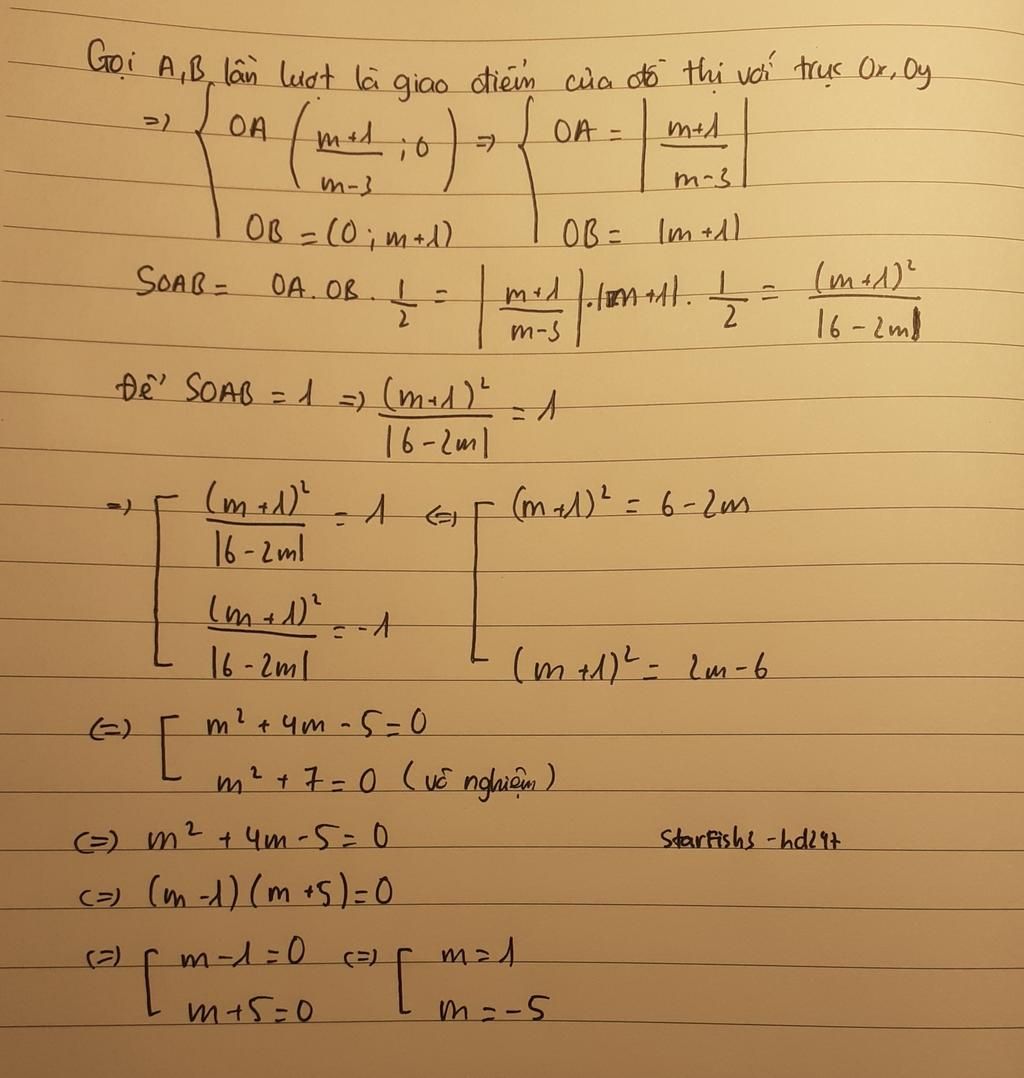 Gọi A,B lần lượt là giao điểm của đồ thị với trục Ox, Oy
=> { OA ( m+1 / m-3 ; 0 ) => { OA = | m+1 / m-3 |
OB = (0 ; m+1) OB = |m+1|
SOAB = OA. OB . 1/2 = | m+1 / m-3 | . |m+1| . 1/2 = (m+1)² / |6-2m|
Để SOAB = 1 => (m+1)² / |6-2m| = 1
=> [ (m+1)² / |6-2m| = 1 <=> [ (m+1)² = 6-2m
(m+1)² / |6-2m| = -1 (m+1)² = 2m-6
<=> [ m² + 4m - 5 = 0
m² + 7 = 0 (vô nghiệm)
<=> m² + 4m - 5 = 0 StarFish3 -hd247
<=> (m-1)(m+5)=0
<=> [ m-1=0 <=> [ m=1
m+5=0 m=-5